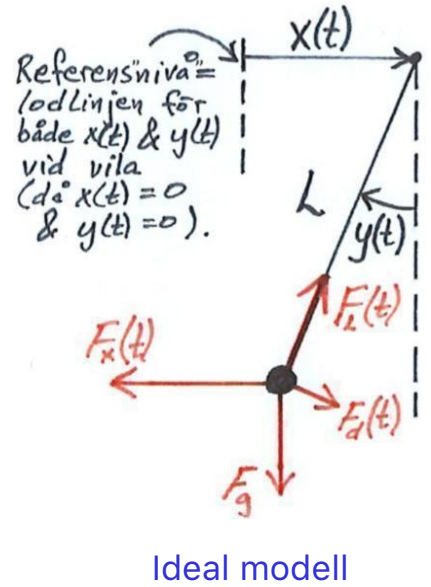 x(t)
Referens"nivå"=
lodlinjen för
både x(t) & y(t)
vid vila
(då x(t) = 0
& y(t) = 0).
L
y(t)
F_L(t)
F_x(t)
F_d(t)
F_g
Ideal modell